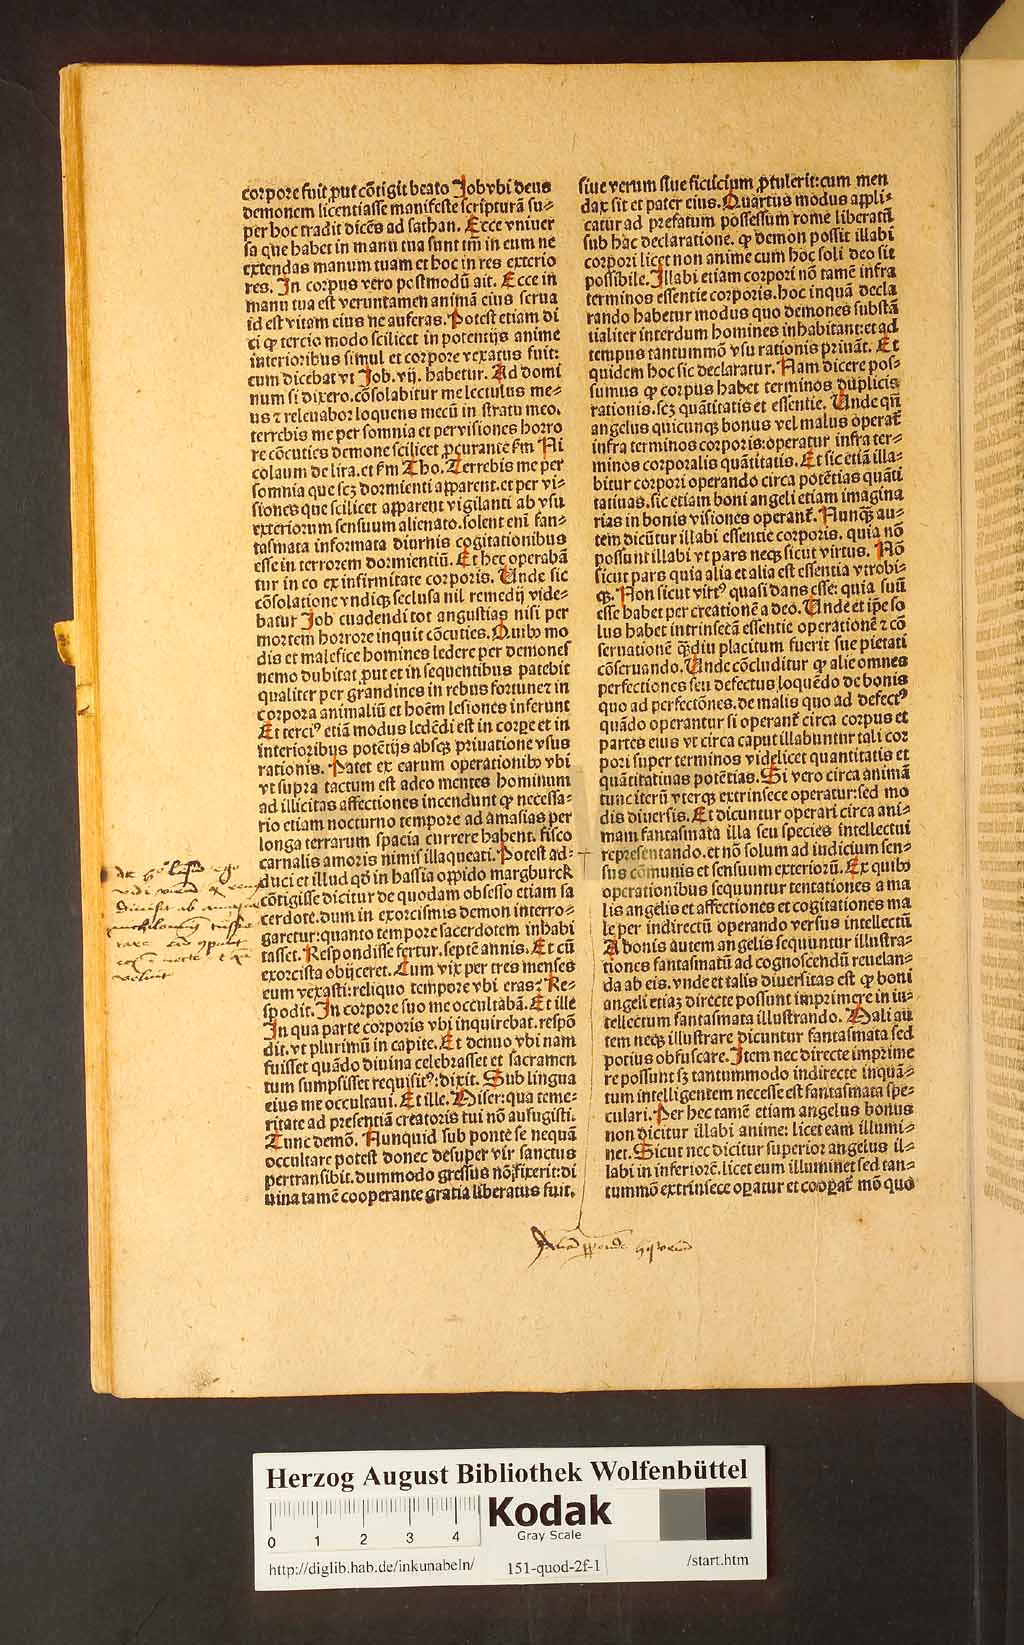 corpore fuit ꝓut cõtigit beato Job vbi deus
demonem licentiasse manifeste scripturã su⸗
per hoc tradit dicẽs ad sathan. Ecce vniuer
sa que habet in manu tua sunt tm̃ in eum ne
extendas manum tuam et hoc in res exterio
res. In corpus vero postmodũ ait. Ecce in
manu tua est veruntamen animã eius serua
id est vitam eius ne auferas. Potest etiam di
ci ꝙ tercio modo scilicet in potentijs anime
interioribus simul et corpore vexatus fuit:
cum dicebat vt Job. vij. habetur. Ad domi
num si dixero. cõsolabitur me lectulus me⸗
us ⁊ releuabor loquens mecũ in stratu meo.
terrebis me per somnia et per visiones horro
re cõcuties demone scilicet ꝓcurante fm̃ Ni
colaum de lira. et fm̃ Tho. Terrebis me per
somnia que scꝫ dormienti apparent. et per vi⸗
siones que scilicet apparent vigilanti ab vsu
exteriorum sensuum alienato. solent enĩ fan⸗
tasmata informata diurnis cogitationibus
esse in terrorem dormientiũ. Et hec operabã
tur in eo ex infirmitate corporis. Unde sic
cõsolatione vndiqꝫ seclusa nil remedij vide⸗
batur Job euadendi tot angustias nisi per
mortem horrore inquit cõcuties. Quibꝰ mo
dis et malefice homines ledere per demones
nemo dubitat ꝓut et in sequentibus patebit
qualiter per grandines in rebus fortune ⁊ in
corpora animaliũ et hoẽm lesiones inferunt
Et terciꝰ etiã modus ledẽdi est in corpe et in
interioribus potẽtijs absqꝫ priuatione vsus
rationis. Patet ex earum operationibꝰ vbi
vt supra tactum est adeo mentes hominum
ad illicitas affectiones incendunt ꝙ necessa⸗
rio etiam nocturno tempore ad amasias per
longa terrarum spacia currere habent. fisco
carnalis amoris nimis illaqueati. Potest ad⸗
duci et illud qd̃ in hassia oppido margburck
cõtigisse dicitur de quodam obsesso etiam sa
cerdote. dum in exorcismis demon interro⸗
garetur: quanto tempore sacerdotem inhabi
tasset. Respondisse fertur. septẽ annis. Et cũ
exorcista obijceret. Cum vix per tres menses
eum vexasti: reliquo tempore vbi eras? Re⸗
spõdit. In corpore suo me occultabã. Et ille
In qua parte corporis vbi inquirebat. respõ
dit. vt plurimũ in capite. Et denuo vbi nam
fuisset quãdo diuina celebrasset et sacramen
tum sumpsisset requisitꝰ: dixit. Sub lingua
eius me occultaui. Et ille. Miser: qua teme⸗
ritate ad presentiã creatoris tui nõ aufugisti.
Tunc demõ. Nunquid sub ponte se nequã
occultare potest donec desuper vir sanctus
pertransibit. dummodo gressus nõ fixerit: di
uina tamẽ cooperante gratia liberatus fuit.
siue verum siue ficticium ꝓtulerit: cum men
dax sit et pater eius. Quartus modus appli⸗
catur ad prefatum possessum rome liberatũ
sub hac declaratione. ꝙ demon possit illabi
corpori licet non anime cum hoc soli deo sit
possibile. Illabi etiam corpori nõ tamẽ infra
terminos essentie corporis. hoc inquã decla
rando habetur modus quo demones substã
tialiter interdum homines inhabitant: et ad
tempus tantummõ vsu rationis priuãt. Et
quidem hoc sic declaratur. Nam dicere pos⸗
sumus ꝙ corpus habet terminos duplicis
rationis. scꝫ quãtitatis et essentie. Unde qñ
angelus quicunqꝫ bonus vel malus operat̃
infra terminos corporis: operatur infra ter⸗
minos corporalis quãtitatis. Et sic etiã illa⸗
bitur corpori operando circa potẽtias quãti
tatiuas. sic etiam boni angeli etiam imagina
rias in bonis visiones operant̃. Nunqꝫ au⸗
tem dicũtur illabi essentie corporis. quia nõ
possunt illabi vt pars neqꝫ sicut virtus. Nõ
sicut pars quia alia et alia est essentia vtrobi⸗
qꝫ. Non sicut virtꝰ quasi dans esse: quia suũ
esse habet per creationẽ a deo. Unde et ip̃e so
lus habet intrinsecã essentie operationẽ ⁊ cõ
seruationẽ qꝫdiu placitum fuerit sue pietati
cõseruando. Unde cõcluditur ꝙ alie omnes
perfectiones seu defectus loquẽdo de bonis
quo ad perfectõnes. de malis quo ad defectꝰ
quãdo operantur si operant̃ circa corpus et
partes eius vt circa caput illabuntur tali cor
pori super terminos videlicet quantitatis et
quãtitatiuas potẽtias. Si vero circa animã
tunc iterũ vterqꝫ extrinsece operatur: sed mo
dis diuersis. Et dicuntur operari circa ani⸗
mam fantasmata illa seu species intellectui
representando. et nõ solum ad iudicium sen⸗
sus cõmunis et sensuum exteriorũ. Ex quibꝰ
operationibus sequuntur tentationes a ma
lis angelis et affectiones et cogitationes ma
le per indirectũ operando versus intellectũ
A bonis autem angelis sequuntur illustra⸗
tiones fantasmatũ ad cognoscendũ reuelan⸗
da ab eis. vnde et talis diuersitas est ꝙ boni
angeli etiaꝫ directe possunt imprimere in in⸗
tellectum fantasmata illustrando. Mali au
tem neqꝫ illustrare dicuntur fantasmata sed
potius obfuscare. Item nec directe imprime
re possunt sꝫ tantummodo indirecte inquã⸗
tum intelligentem necesse est fantasmata spe⸗
culari. Per hec tamẽ etiam angelus bonus
non dicitur illabi anime: licet eam illumi⸗
net. Sicut nec dicitur superior angelus il⸗
labi in inferiorẽ. licet eum illuminet sed tan⸗
tummõ extrinsece opatur et coopat̃ mõ quo
Herzog August Bibliothek Wolfenbüttel
Kodak
Gray Scale
0 1 2 3 4
http://diglib.hab.de/inkunabeln/ 151-quod-2f-1 /start.htm